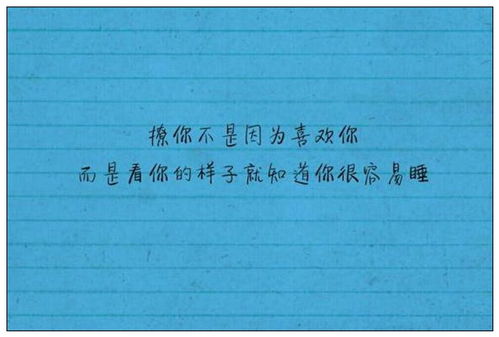 撩你不是因为喜欢你
而是看你的样子就知道你很容易睡